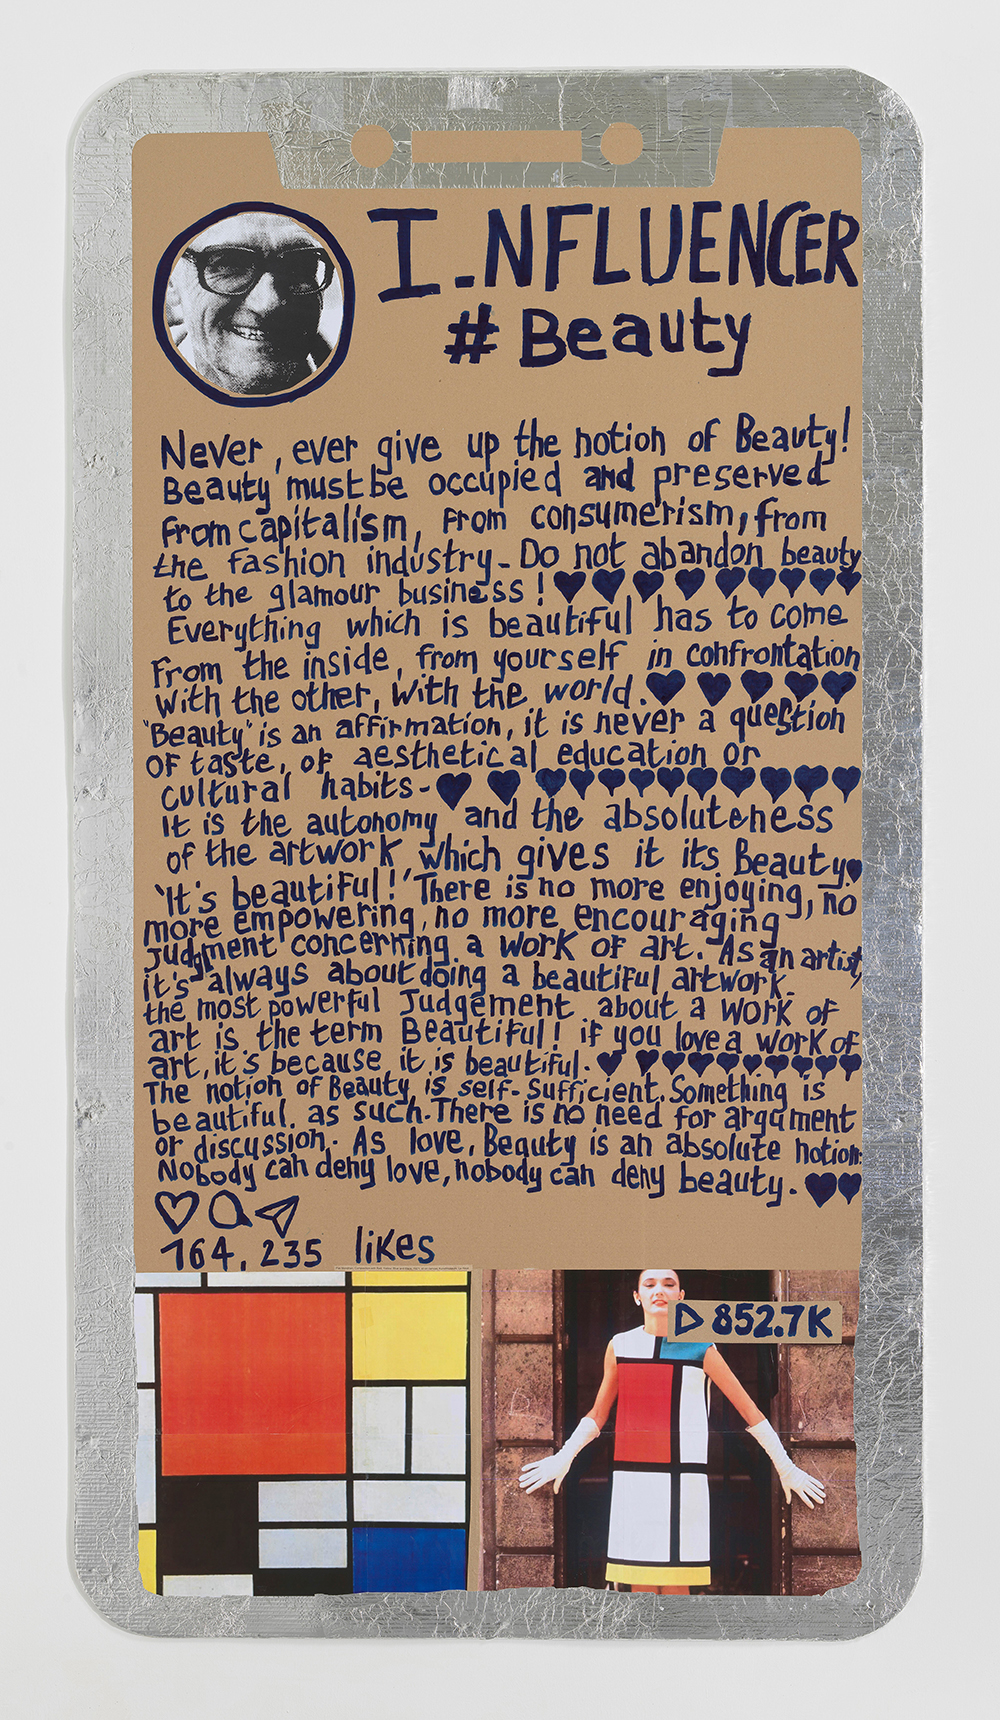 I.NFLUENCER
# Beauty
Never, ever give up the notion of Beauty!
Beauty must be occupied and preserved
from capitalism, from consumerism, from
the fashion industry - Do not abandon beauty
to the glamour business! ♥♥♥♥♥♥♥♥♥
Everything which is beautiful has to come
from the inside, from yourself in confrontation
with the other, with the world. ♥♥♥♥♥
"Beauty" is an affirmation, it is never a question
of taste, of aesthetical education or
cultural habits - ♥♥♥♥♥♥♥♥♥♥♥♥
It is the autonomy and the absoluteness
of the artwork which gives it its Beauty ♥
'It's beautiful!' There is no more enjoying, no
more empowering, no more encouraging
judgment concerning a work of art. As an artist,
it's always about doing a beautiful artwork.
the most powerful Judgement about a work of
art is the term Beautiful! if you love a work of
art, it's because it is beautiful. ♥♥♥♥♥♥♥♥♥♥
The notion of Beauty is self-sufficient. Something is
beautiful. as such. There is no need for argument
or discussion. As love, Beauty is an absolute notion:
Nobody can deny love, nobody can deny beauty. ♥♥
764,235 likes
852.7K